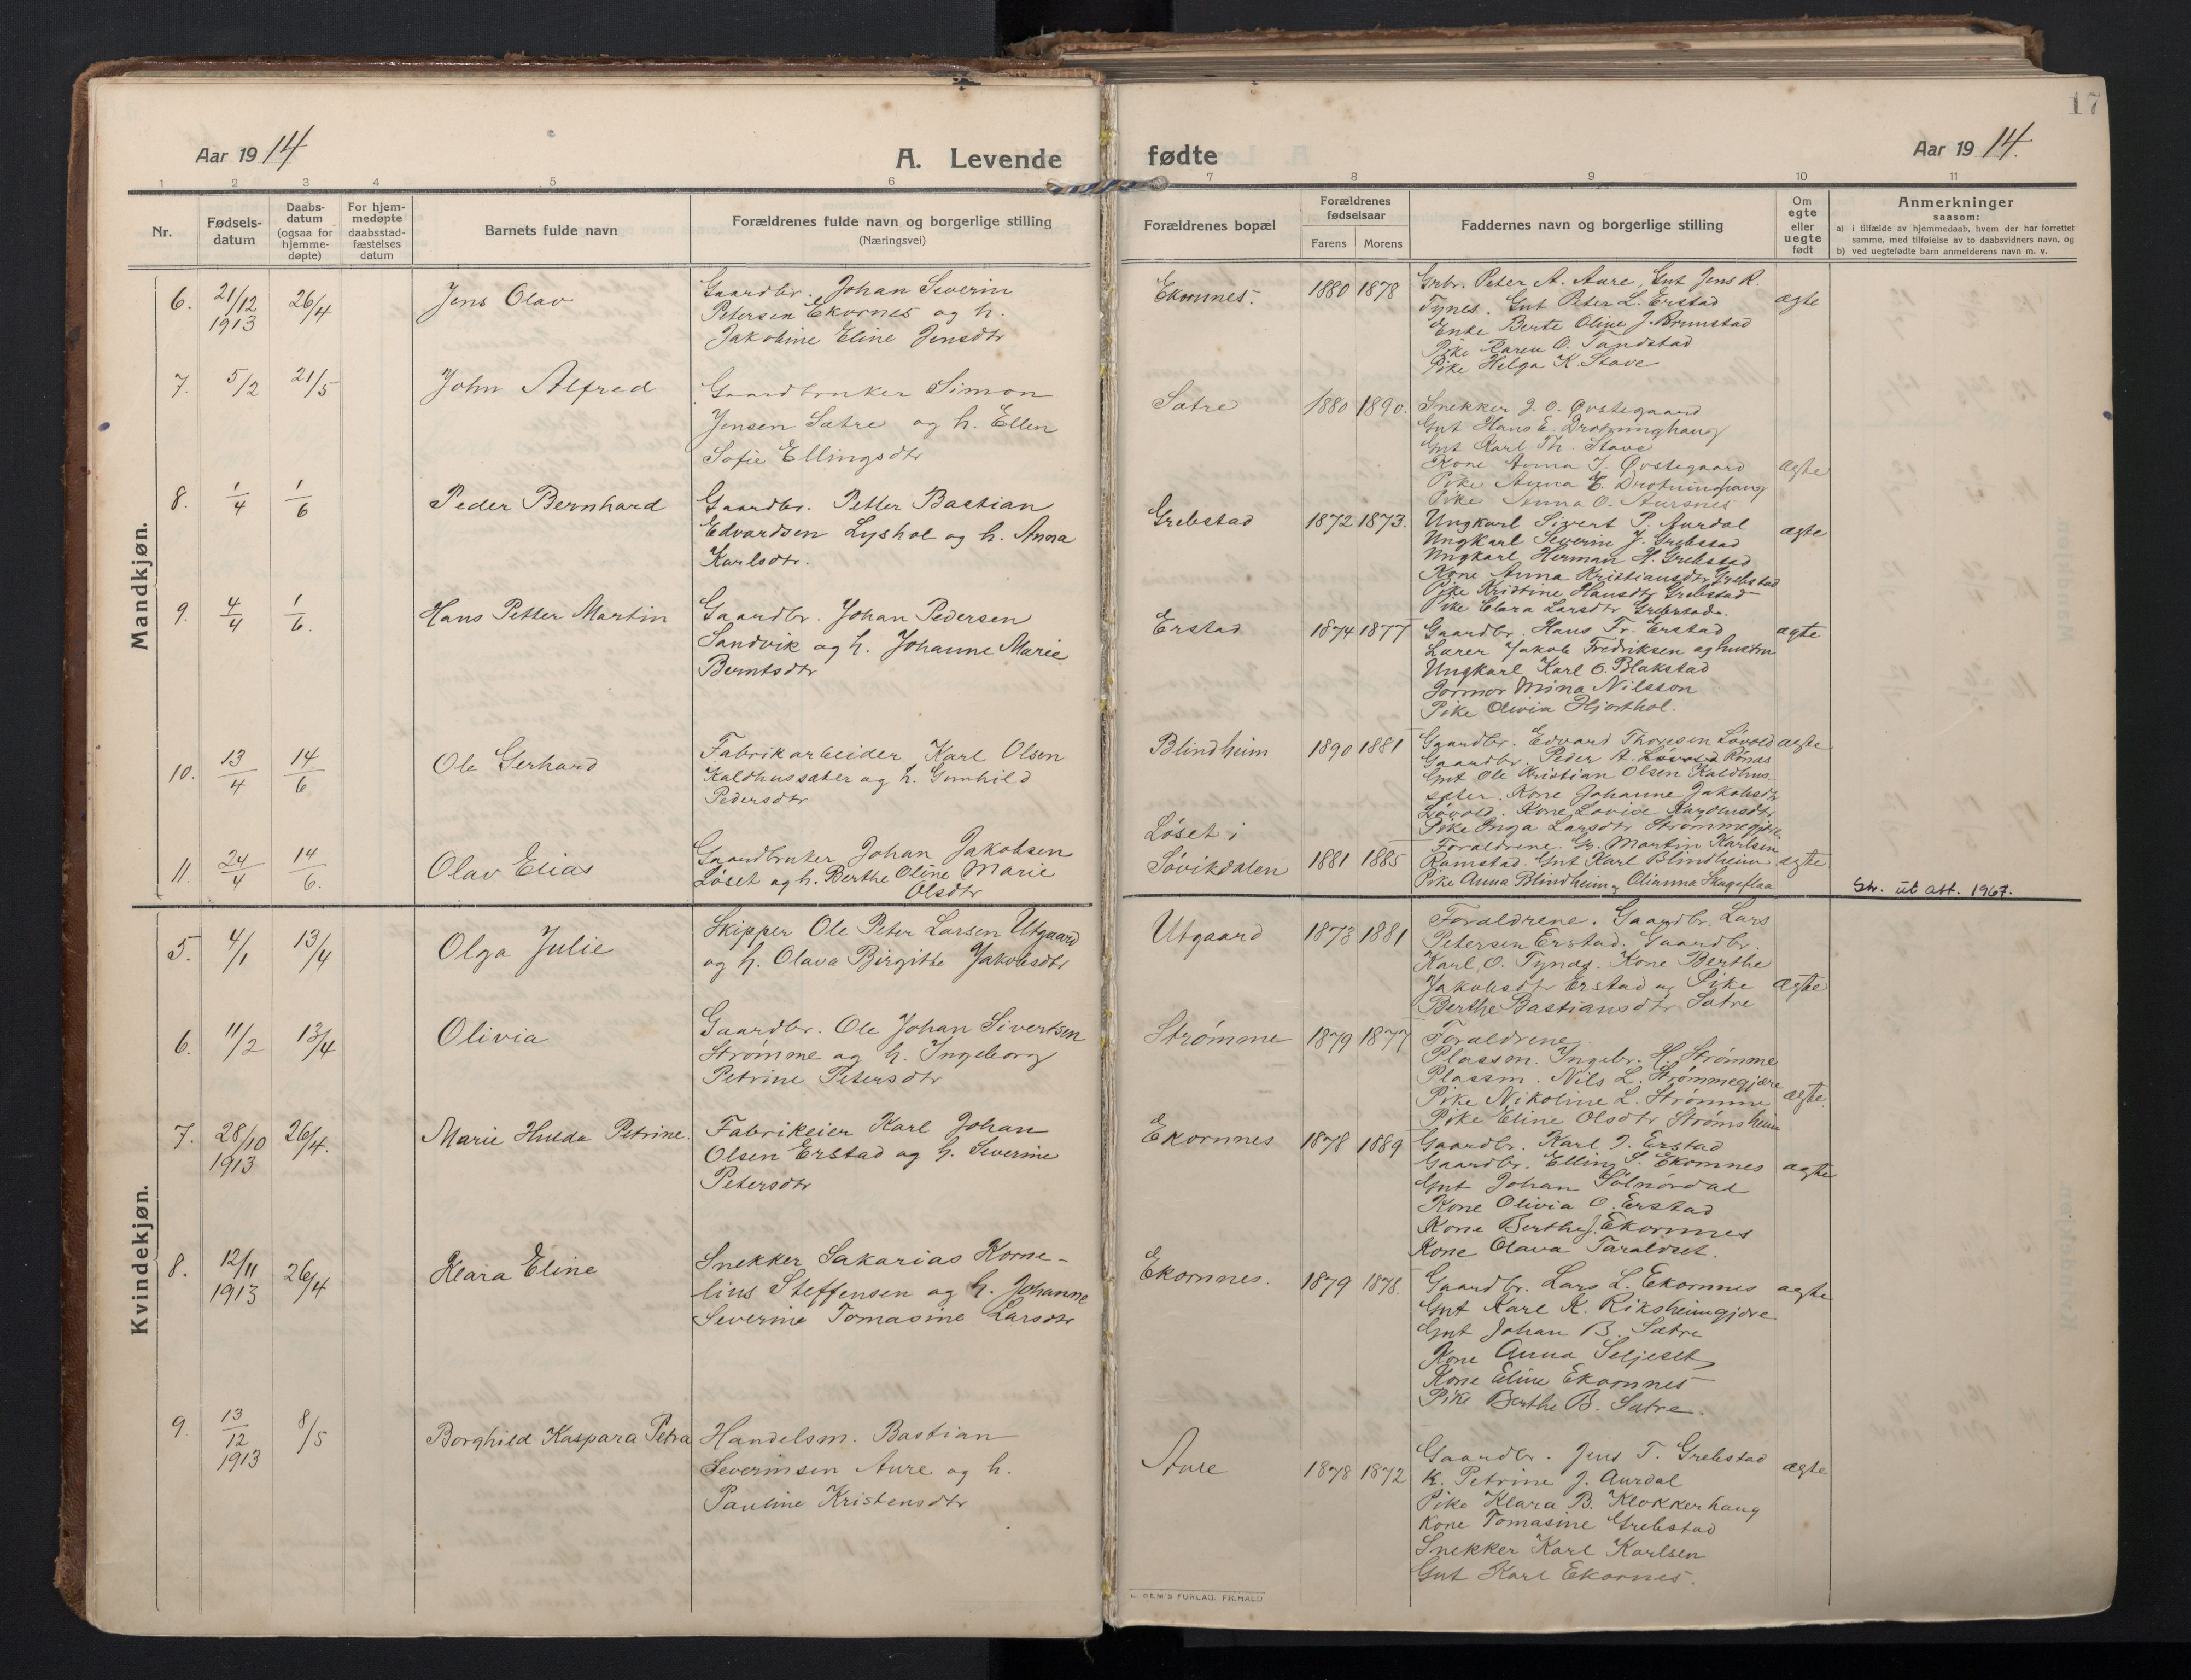 17
Aar 1914
A. Levende fødte
Aar 1914.
1 2 3 4 5 6 7 8 9 10 11
Nr.
Fødsels-
datum
Daabs-
datum
(ogsaa for
hjemme-
døpte)
For hjem-
medøpte
daabsstad-
fæstelses
datum
Barnets fulde navn
Forældrenes fulde navn og borgerlige stilling
(Næringsvei)
Forældrenes bopæl
Forældrenes
fødselsaar
Farens Morens
Faddernes navn og borgerlige stilling
Om
egte
eller
uegte
født
Anmerkninger
saasom:
a) i tilfælde av hjemmedaab, hvem der har forrettet
samme, med tilføielse av to daabsvidners navn, og
b) ved uegtefødte barn anmelderens navn m. v.
Mandkjøn.
6. 21/12 1913 26/4 Jens Olav
Gaardbr. Johan Severin
Petersen Ekornes og h.
Jakobine Eline Jensdtr
Ekornnes. 1880 1878
Grbr. Peter A. Aure, Gut Jens R.
Tynes. Gut Peter L. Erstad
Enke Berte Oline J. Brunstad
Pike Karen O. Tandstad
Pike Helga K. Stave
ægte
7. 5/2 21/5 John Alfred
Gaardbruker Simon
Jensen Sætre og h. Ellen
Sofie Ellingsdtr
Sætre 1880 1890.
Snekker J. O. Øvstegaard
Gut Hans E. Drotninghaug
Gut Karl Th. Stave
Kone Anna J. Øvstegaard
Pike Anna E. Drotninghaug
Pike Anna O. Aursnes
ægte
8. 1/4 1/6 Peder Bernhard
Gaardbr. Petter Bastian
Edvardsen Lyshol og h. Anna
Karlsdtr.
Grebstad 1872 1873.
Ungkarl Sivert P. Aurdal
Ungkarl Severin J. Grebstad
Ungkarl Herman H. Grebstad
Kone Anna Kristiansdtr Grebstad
Pike Kristine Hansdtr Grebstad
Pike Clara Larsdtr Grebstad.
ægte
9. 4/4 1/6. Hans Petter Martin
Gaardbr. Johan Pedersen
Sandvik og h. Johanne Marie
Berntsdtr
Erstad 1874 1877
Gaardbr. Hans Fr. Erstad
Lærer Jakob Fredriksen og hustru
Ungkarl Karl O. Blakstad
Jormor Mina Nilsson
Pike Olivia Hjorthol.
ægte
10. 13/4 14/6 Ole Gerhard
Fabrikarbeider Karl Olsen
Kaldhussæter og h. Gunhild
Pedersdtr
Blindheim 1890 1881
Gaardbr. Edvard Thoresen Løvold
Gaardbr. Peder A. Løvold Rønas
Gut Ole Kristian Olsen Kaldhus-
sæter. Kone Johanne Jakobsdtr
Løvold. Kone Lovise
Pike Inga Larsdtr Strømmegjære
ægte
11. 24/4 14/6. Olav Elias
Gaardbruker Johan Jakobsen
Løset og h. Berthe Oline Marie
Olsdtr
Løset i
Søvikdalen 1881 1885
Forældrene. Gr. Martin Karlsen
Ramstad. Gut Karl Blindheim
Pike Anna Blindheim, Olianna Skagsflaa
ægte
Str. ut att. 1967.
Kvindekjøn.
5. 4/1 13/4 Olga Julie
Skipper Ole Peter Larsen Utgaard
og h. Olava Birgitte Jakobsdtr
Utgaard 1873 1881
Forældrene. Gaardbr. Lars
Petersen Erstad. Gaardbr.
Karl O. Tynes. Kone Berthe
Jakobsdtr Erstad og Pike
Berthe Bastiansdtr Sætre
ægte
6. 11/2 13/4 Olivia
Gaardbr. Ole Johan Sivertsen
Strømme og h. Ingeborg
Petrine Petersdtr
Strømme 1879 1877
Forældrene.
Plassm. Ingebr. H. Strømme
Plassm. Nils L. Strømmegjære
Pike Nikoline L. Strømme
Pike Eline Olsdtr Strømsheim
ægte.
7. 28/10 1913 26/4. Marie Hulda Petrine.
Fabrikeier Karl Johan
Olsen Erstad og h. Severine
Petersdtr
Ekornnes 1878 1889
Gaardbr. Karl J. Erstad
Gaardbr. Elling S. Ekornnes
Gut Johan Solnørdal
Kone Olivia O. Erstad
Kone Berthe J. Ekornnes
Kone Olava Taraldset.
ægte
8. 12/11 1913 26/4 Klara Eline
Snekker Sakarias Korne-
lius Steffensen og h. Johanne
Severine Tomasine Larsdtr
Ekornnes. 1879 1878.
Gaardbr. Lars L. Ekornnes
Gut Karl K. Riksheimgjære
Gut Johan B. Sætre
Kone Anna Seljeset
Kone Eline Ekornnes
Pike Berthe B. Sætre.
ægte
9. 13/12 1913 8/5 Borghild Kaspara Petra
Handelsm. Bastian
Severinsen Aure og h.
Pauline Kristensdtr
Aure 1878 1872
Gaardbr. Jens T. Grebstad
K. Petrine J. Aurdal
Pike Klara B. Klokkerhaug
Kone Tomasine Grebstad
Snekker Karl Karlsen
Gut Karl Ekornes.
ægte